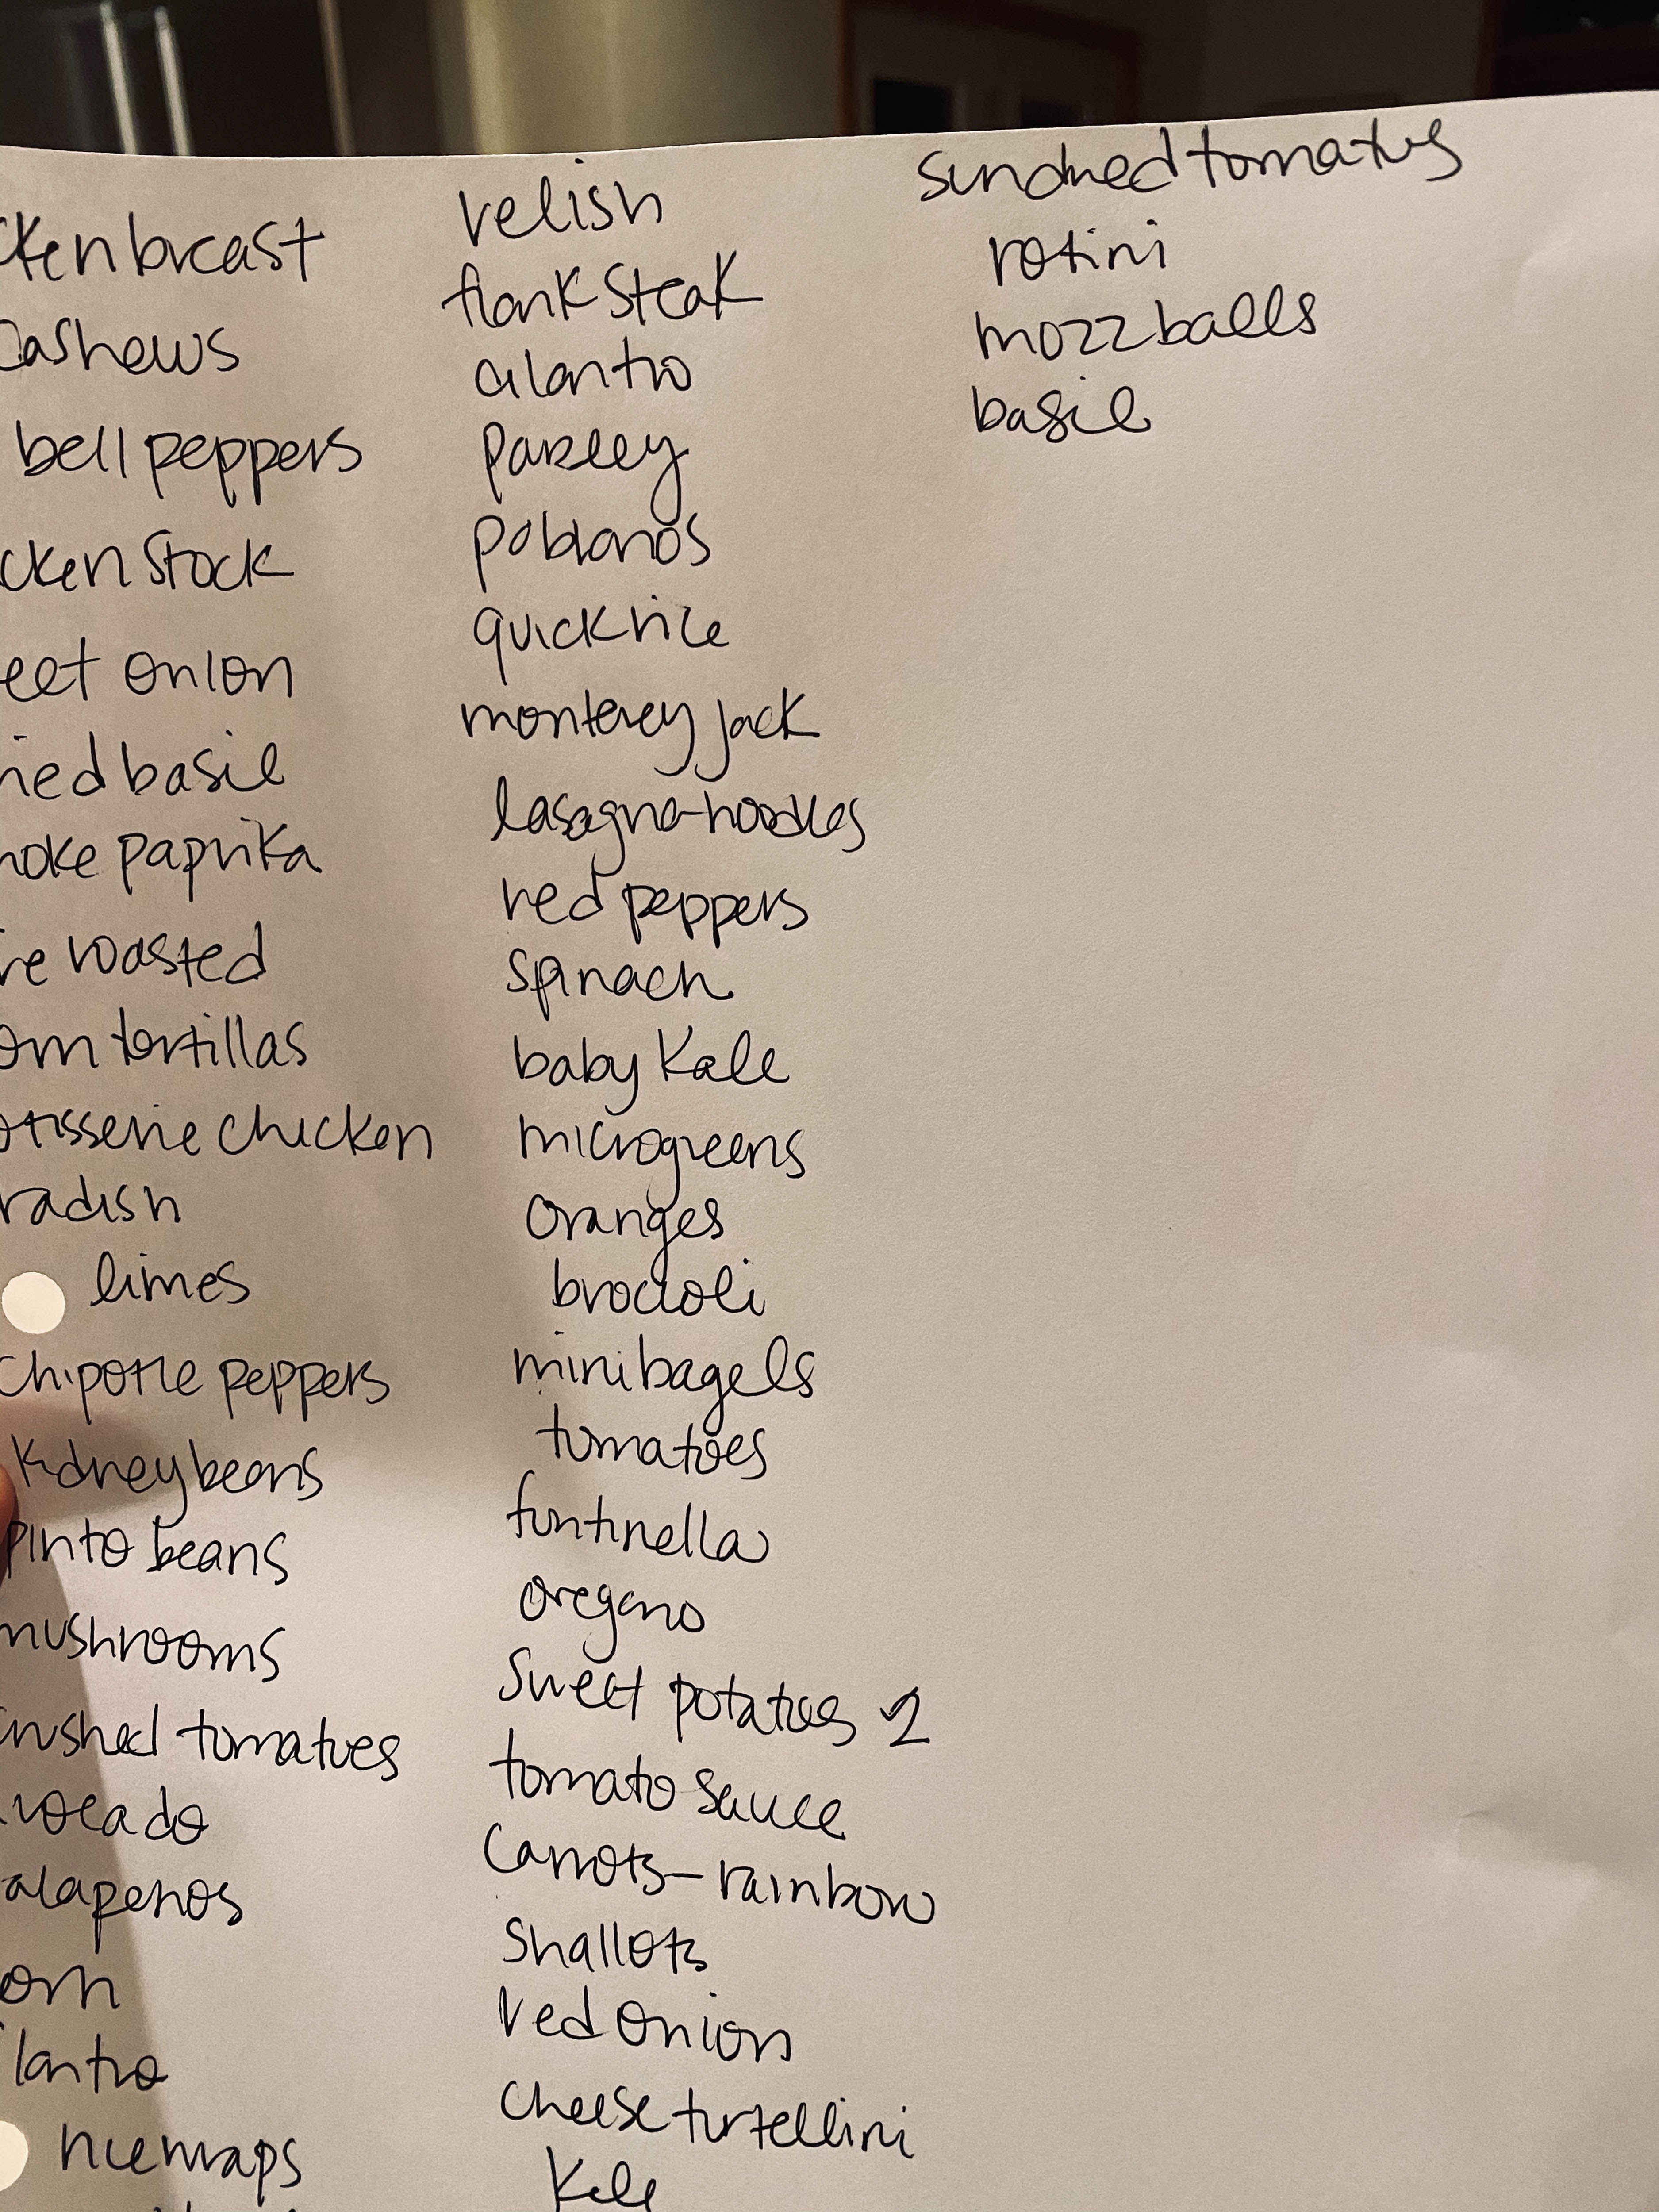 ken breast
Cashews
bell peppers
cken Stock
eet onion
ried basil
moke paprika
re roasted
orn tortillas
otisserie chicken
radish
limes
Chipotle peppers
Kidney beans
Pinto beans
mushrooms
crushed tomatoes
avocado
alapenos
orn
ilantro
rice wraps
relish
flank Steak
cilantro
parsley
poblanos
quick rice
monterey jack
lasagna-noodles
red peppers
Spinach
baby Kale
microgreens
oranges
broccoli
mini bagels
tomatoes
fontinella
oregano
Sweet potatoes 2
tomato Sauce
Carrots-rainbow
Shallots
red onion
cheese tortellini
Kale
sundried tomatoes
rotini
mozz balls
basil